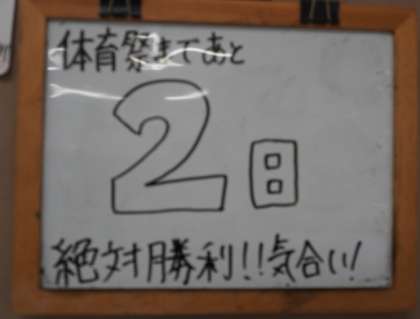 体育祭まであと
2日
絶対勝利!!気合い!